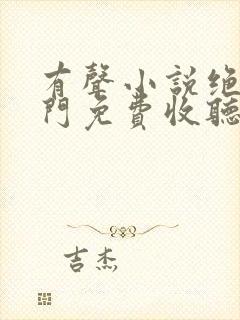 有聲小說绝
門免費收聽
吉杰